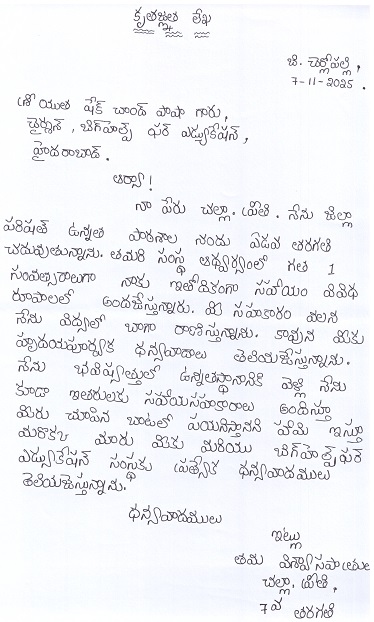 కృతజ్ఞత లేఖ
బి. చెర్లోపల్లి,
7-11-2025.
శ్రీయుత షేక్ చాంద్ పాషా గారు,
చైర్మన్, బిగ్‌హెల్ప్ ఫర్ ఎడ్యుకేషన్,
హైదరాబాద్.
ఆర్యా!
నా పేరు చల్లా. ప్రీతి. నేను జిల్లా
పరిషత్ ఉన్నత పాఠశాల నందు ఏడవ తరగతి
చదువుతున్నాను. తమరి సంస్థ ఆధ్వర్యంలో గత 1
సంవత్సరాలుగా నాకు ఇతోధికంగా సహాయం వివిధ
రూపాలలో అందజేస్తున్నారు. మీ సహకారం వలన
నేను విద్యలో బాగా రాణిస్తున్నాను. కావున మీకు
హృదయపూర్వక ధన్యవాదాలు తెలియజేస్తున్నాను.
నేను భవిష్యత్తులో ఉన్నతస్థానానికి వెళ్లి నేను
కూడా ఇతరులకు సహాయసహకారాలు అందిస్తూ
మీరు చూపిన బాటలో పయనిస్తానని హామి ఇస్తూ
మరొకసారి మీకు మరియు బిగ్‌హెల్ప్ ఫర్
ఎడ్యుకేషన్ సంస్థకు ప్రత్యేక ధన్యవాదములు
తెలియజేస్తున్నాను.
ధన్యవాదములు
ఇట్లు
తమ విశ్వాసపాత్రులు
చల్లా. ప్రీతి,
7వ తరగతి